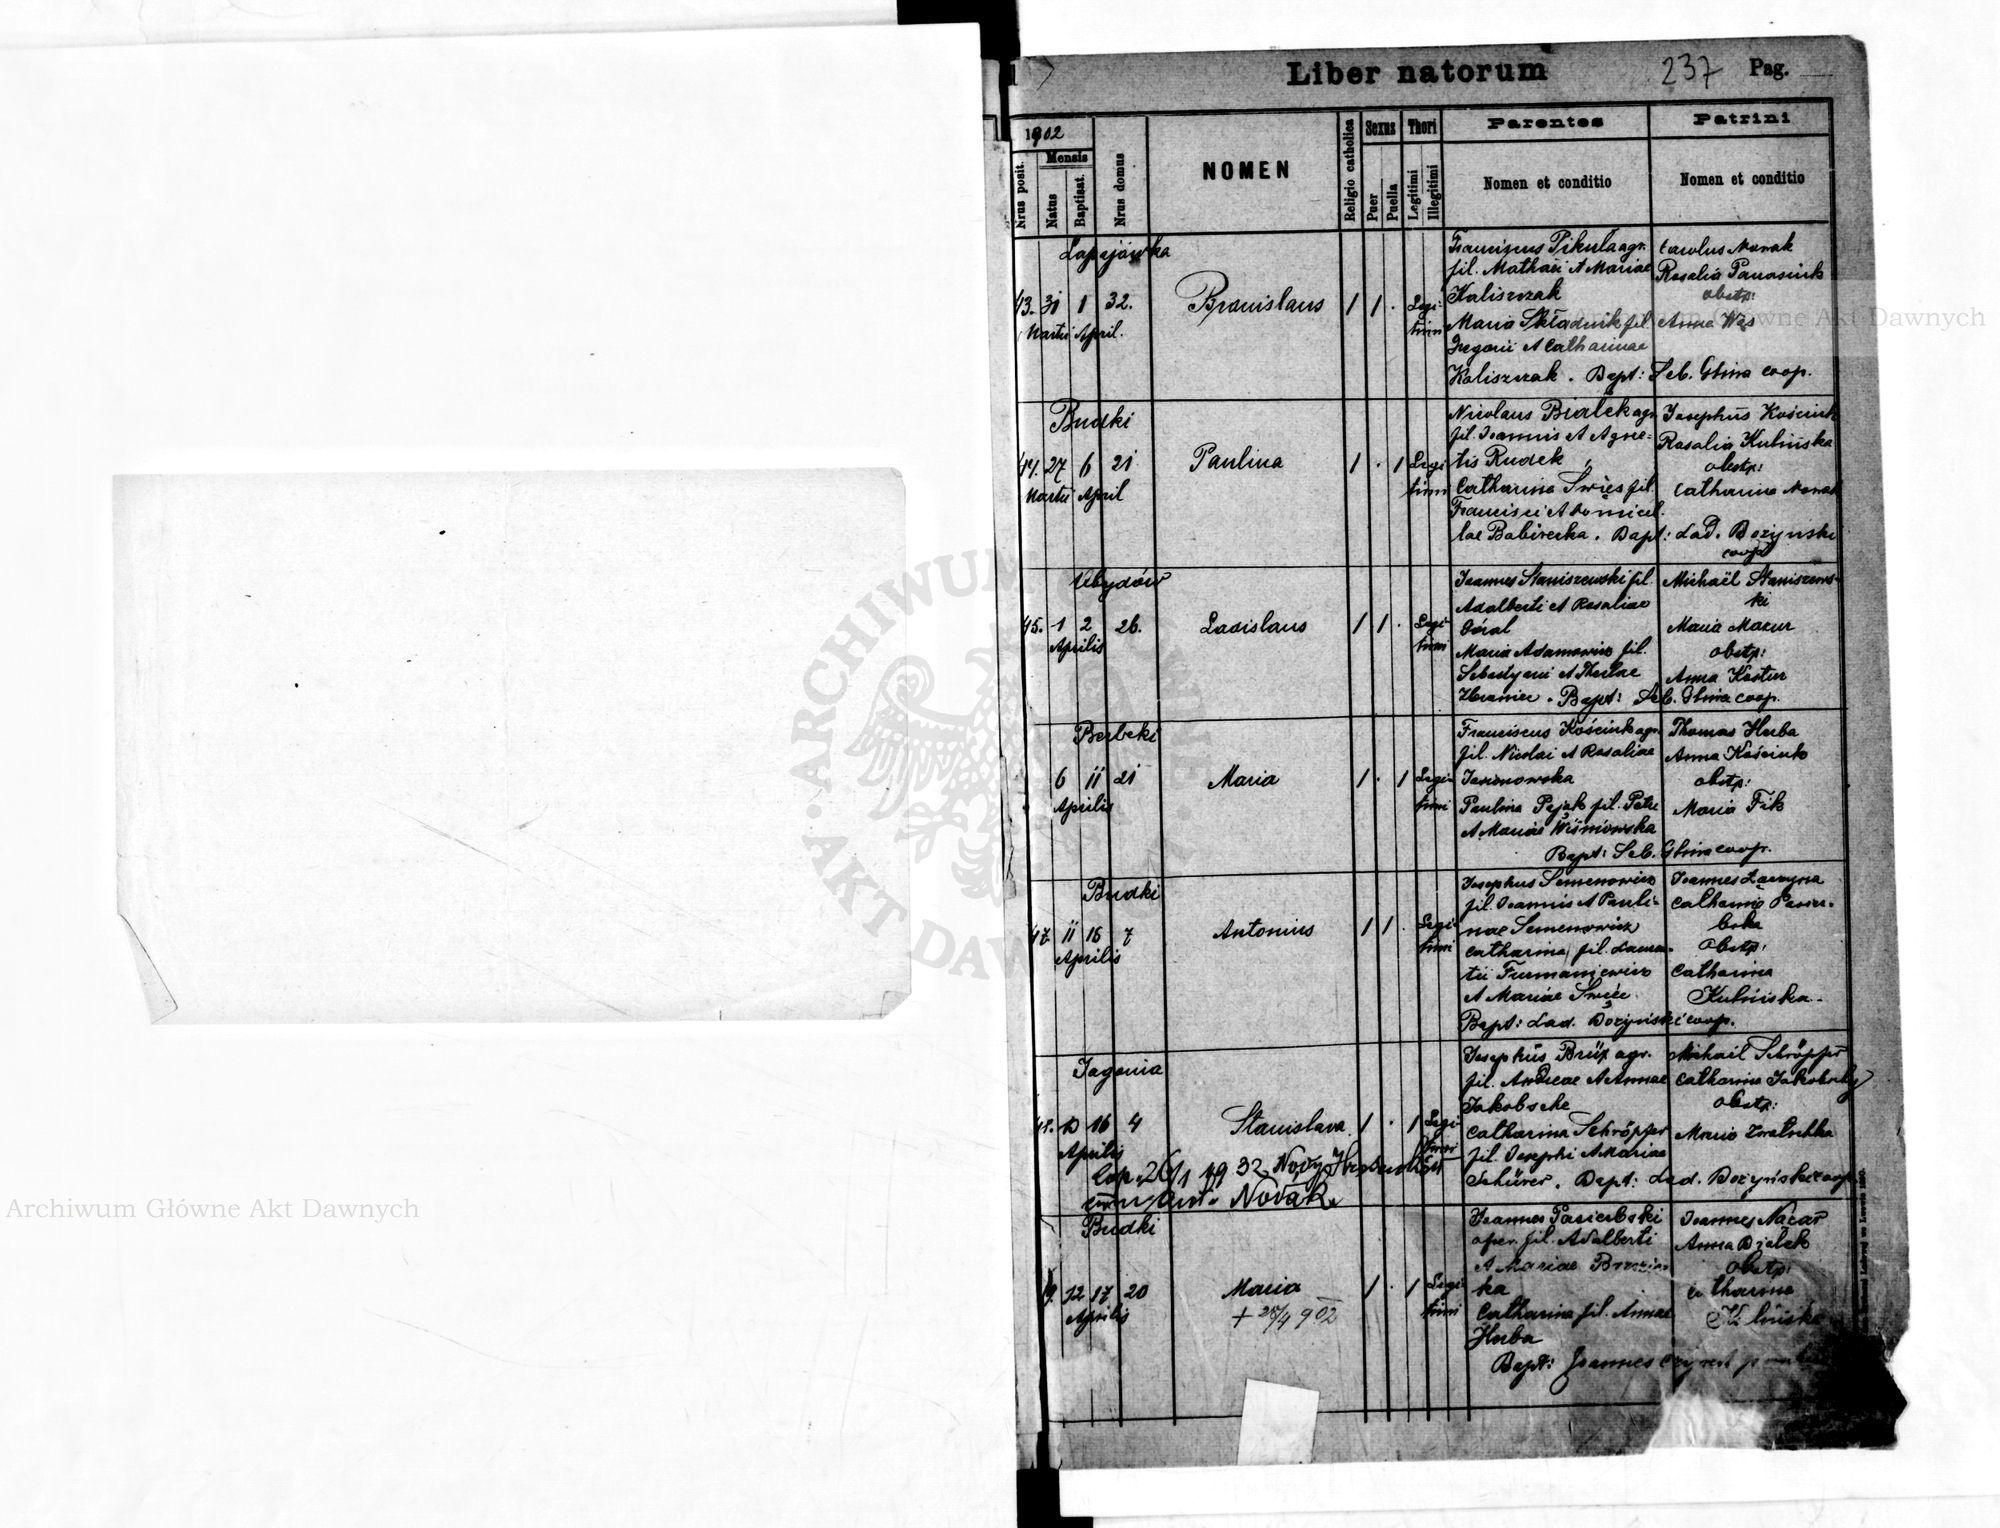 Liber natorum 237 Pag.
1902
Nrus posit.
Mensis
Natus
Baptisat.
Nrus domus
NOMEN
Religio catholica
Sexus
Puer
Puella
Thori
Legitimi
Illegitimi
Parentes
Nomen et conditio
Patrini
Nomen et conditio
Łapajówka
43. 31 1 32.
Martii April.
Bronislaus
1 1 .
Legi-
timi
Franciscus Pikuła agr.
fil. Mathaei A Mariae
Kaliszczak
Maria Składnik fil.
Gregorii A Catharinae
Kaliszczak . Bapt: Seb. Glina coop.
Carolus Nowak
Rosalia Panasiuk
obstp:
Anna Wąs
Budki
44. 27 6 21
Martii April
Paulina
1 . 1
Legi
timi
Nicolaus Białek agr.
fil. Joannis A Agne=
tis Rudek
Catharina Świes fil.
Francisci A Domicel.
lae Babirecka . Bapt: Lad. Bożyński
coop
Josephus Kościuk
Rosalia Kubińska
obstp:
Catharina Nowak
Ubydów
45. 1 2 26.
Aprilis
Ladislaus
1 1 .
Legi-
timi
Joannes Staniszewski fil.
Adalberti A Rosaliae
Góral
Maria Adamowicz fil.
Sebastyani A Theclae
. Bapt: Seb. Glina coop.
Michaël Staniszews-
ki
Maria Mazur
obstp:
Anna Kostur
Berbeki
6 11 21
Aprilis
Maria
1 . 1
Legi-
timi
Franciscus Kościuk agr.
fil. Nicolai A Rosaliae
Jasionowska
Paulina Pająk fil. Petri
A Mariae Wiśniowska
Bapt: Seb. Glina coop.
Thomas Herba
Anna Kościuk
obstp:
Maria Fik
Budki
47. 11 16 7
Aprilis
Antonius
1 1 .
Legi-
timi
Josephus Semenowicz
fil. Joannis A Pauli-
nae Semenowicz
Catharina fil. Lauren-
tii Furmaniewicz
A Mariae Świec
Bapt: Lad. Bożyński coop.
Joannes Łaczyna
Catharina Pasier-
bska
Obstp:
Catharina
Kubińska
Jagonia
48. 13 16 4
Aprilis
Stanislava
1 . 1
Legi
timi
Cop. 26/1 1932 Nový
cum Ant. Novák
Josephus Brüx agr.
fil. Andreae A Annae
Jakobsche
Catharina Schröpfer
fil. Josephi A Mariae
Schürer . Bapt: Lad. Bożyński coop.
Michaël Schröpfer
Catharina
obstp:
Maria Zwatschka
Budki
9. 12 17 20
Aprilis
Maria
+ 28/4 902
1 . 1
Legi-
timi
Joannes Pasierbski
oper. fil. Adalberti
A Mariae Brzezin
ka
Catharina fil. Annae
Herba
Bapt: Joannes
Joannes Nacar
Anna Bjelek
obstp:
Catharina
Kubińska
ARCHIWUM GŁÓWNE AKT DAWNYCH
Archiwum Główne Akt Dawnych
Archiwum Główne Akt Dawnych